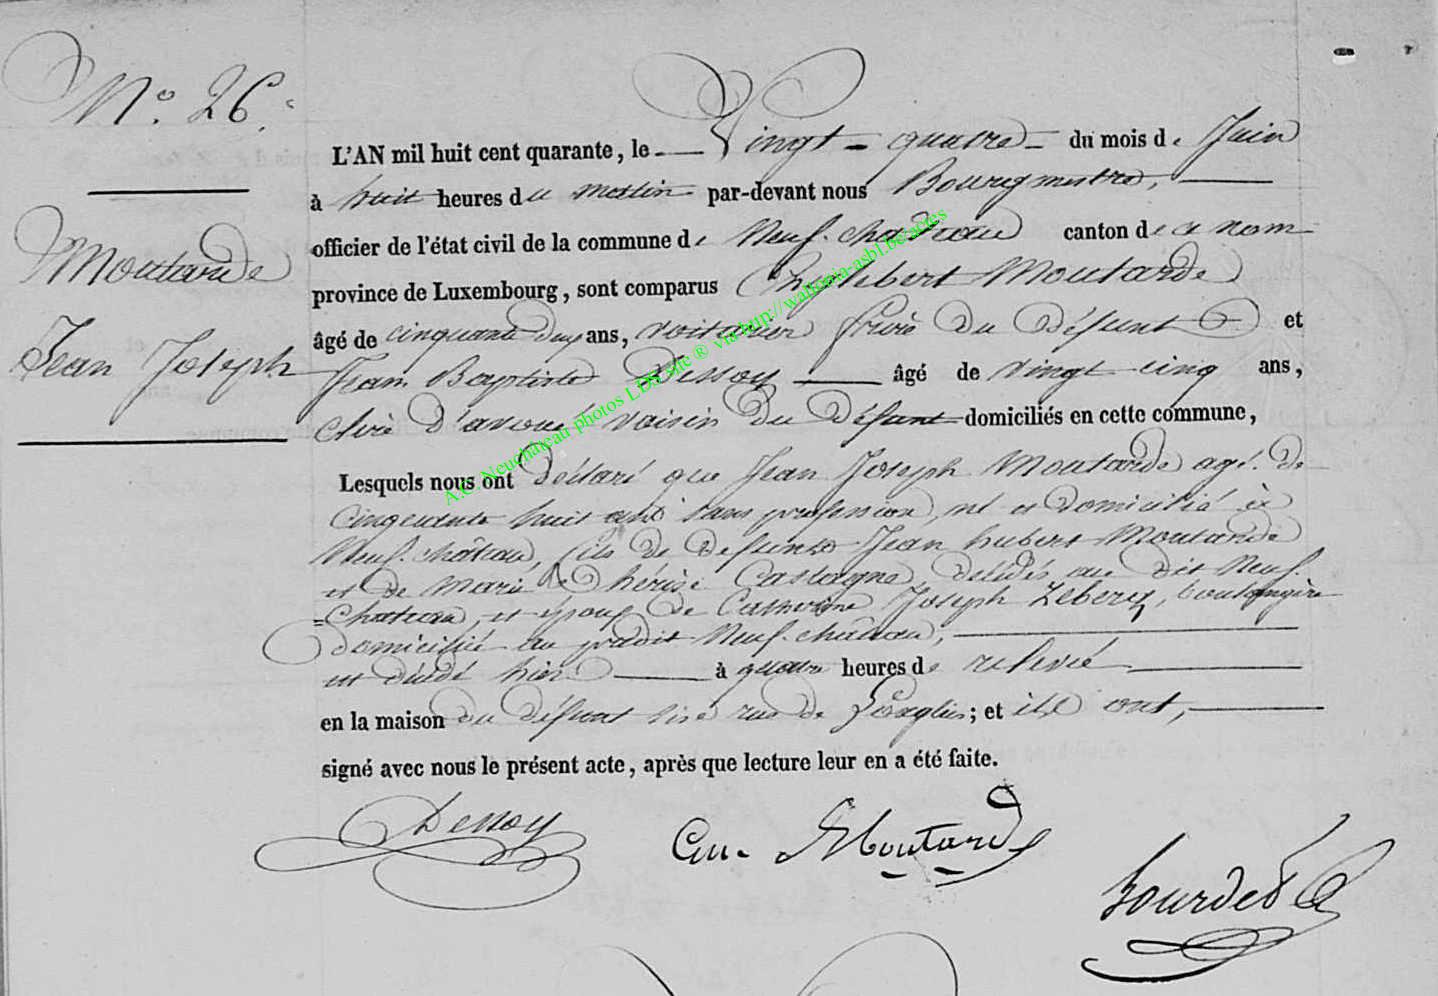 N.° 26.
Moutarde
Jean Joseph
L'AN mil huit cent quarante, le Vingt-quatre du mois de Juin
à huit heures du matin par-devant nous Bourgmestre,
officier de l'état civil de la commune de Neufchateau canton de ce nom
province de Luxembourg, sont comparus Englebert Moutarde
âgé de cinquante deux ans, voiturier frère du défunt et
Jean Baptiste Dessoy âgé de vingt cinq ans,
clerc d'avoué voisin du défunt domiciliés en cette commune,
Lesquels nous ont déclaré que Jean Joseph Moutarde agé de
cinquante huit ans sans profession, né et domicilié à
Neufchâteau, fils de defunts Jean hubert Moutarde
et de Marie Thérèse Castagne, décédés au dit Neuf-
=chateau, et époux de Catherine Joseph Leberg, boulangère
domiciliée au prédit Neufchâteau,
est décédé hier à quatre heures de relevée
en la maison du défunt sise rue de ; et ils ont,
signé avec nous le présent acte, après que lecture leur en a été faite.
Dessoy
En. Moutarde
A.C. Neuchâteau photos LDS site ® via http://wallonia-asbl.be/actes